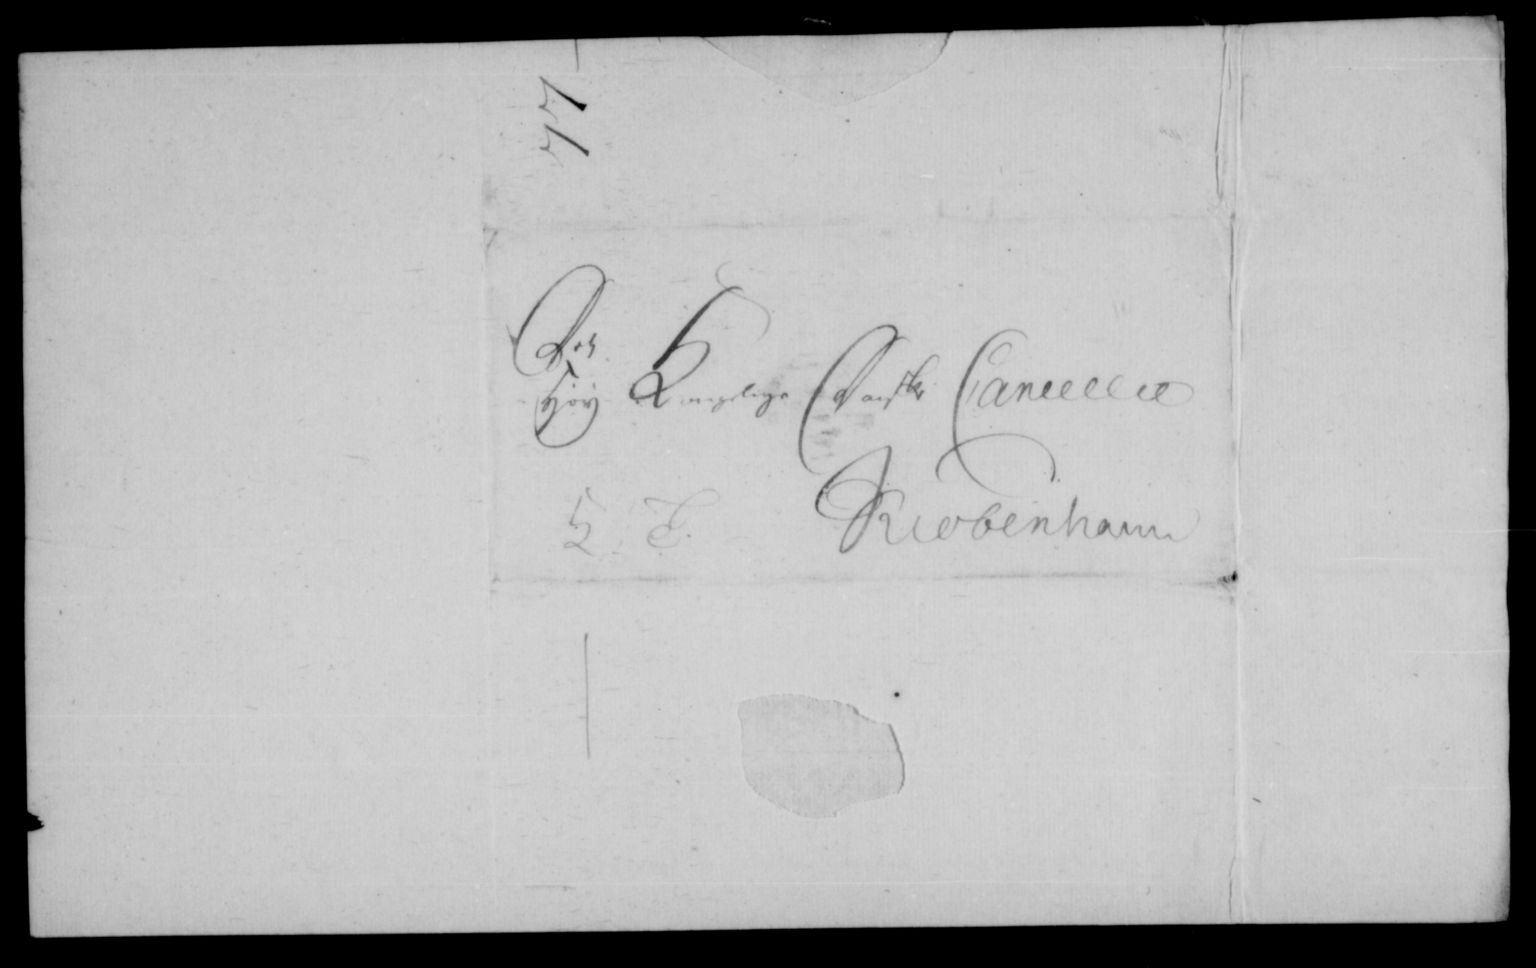 Det
Høy Kongelige Danske Cancellie
K. T. Kiøbenhavn